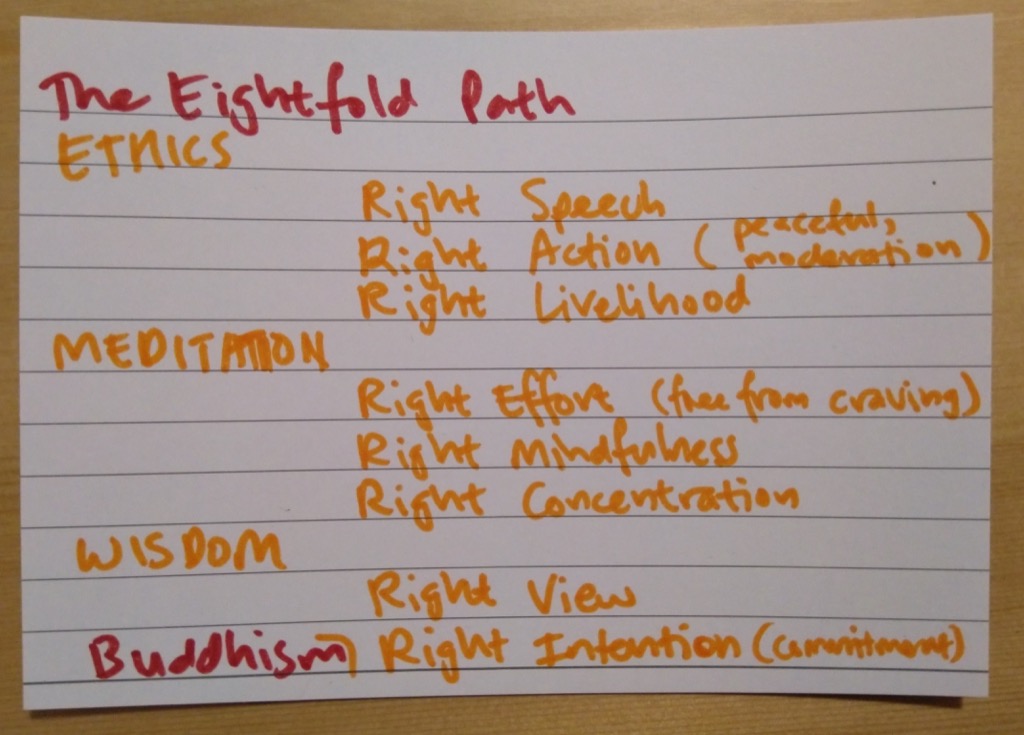 The Eightfold Path
ETHICS
Right Speech
Right Action (peaceful, moderation)
Right Livelihood
MEDITATION
Right Effort (free from craving)
Right Mindfulness
Right Concentration
WISDOM
Right View
Buddhism) Right Intention (commitment)